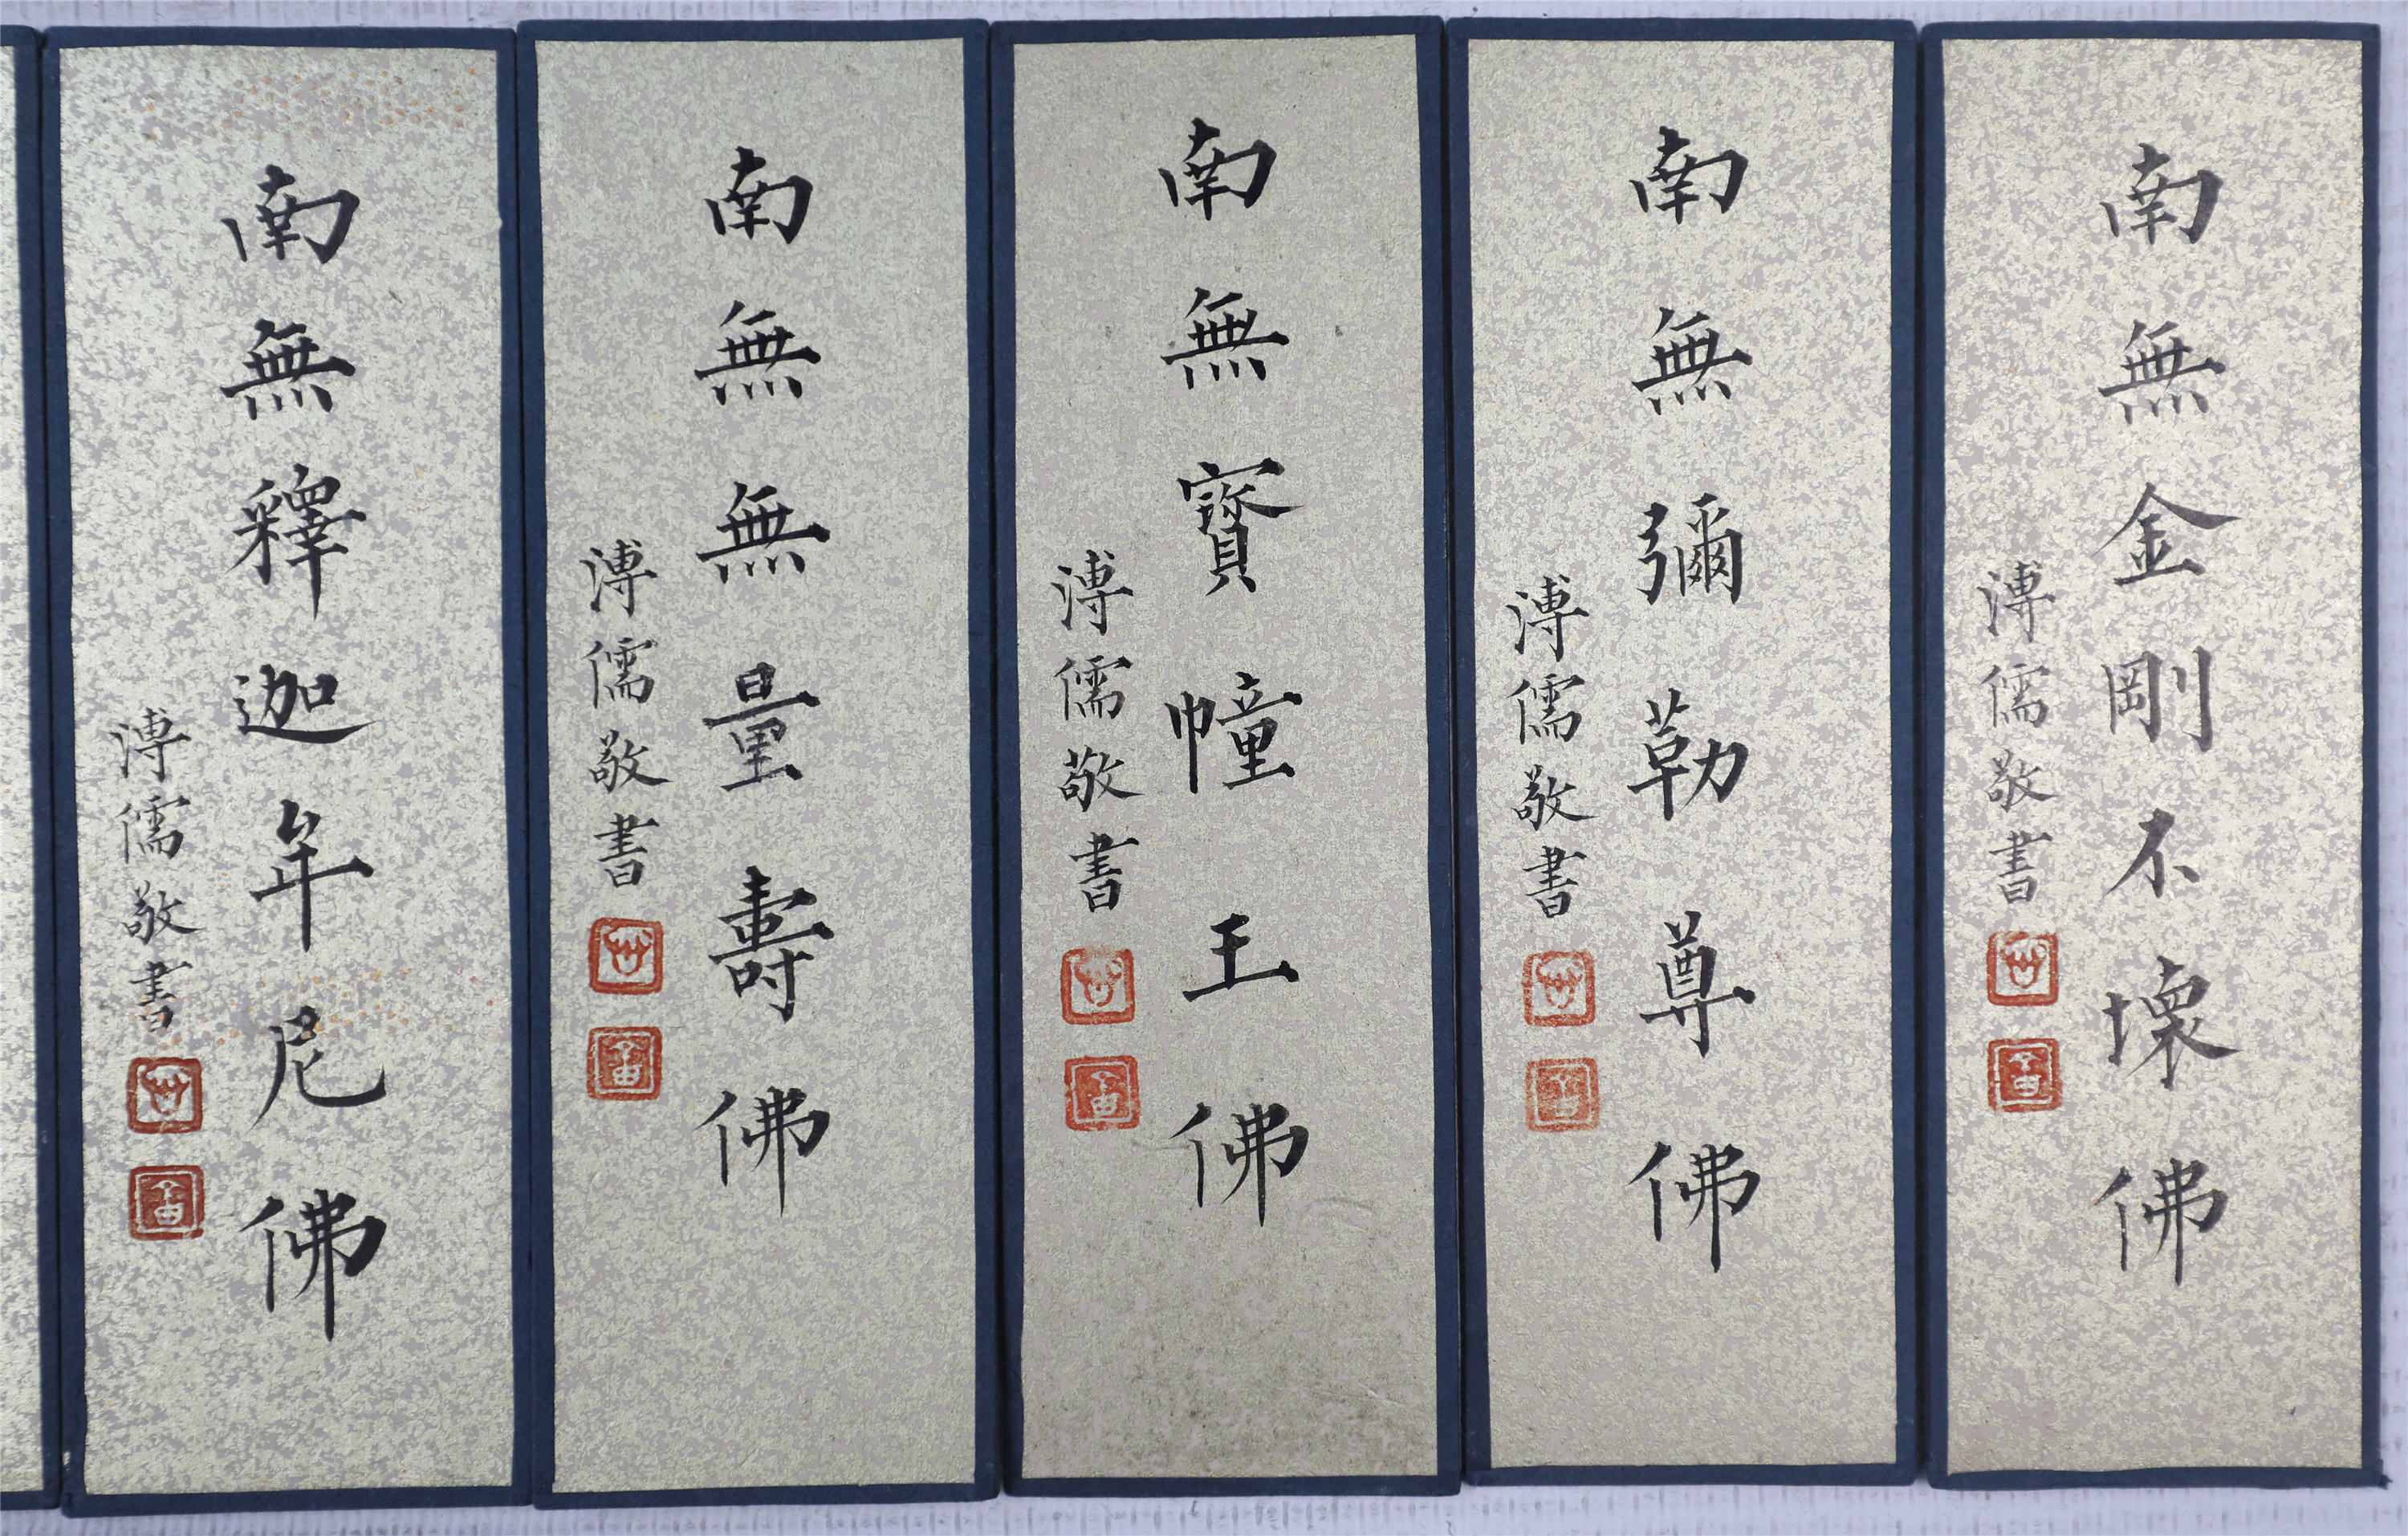 南無金剛不壞佛
溥儒敬書
南無彌勒尊佛
溥儒敬書
南無寳幢王佛
溥儒敬書
南無無量壽佛
溥儒敬書
南無釋迦牟尼佛
溥儒敬書